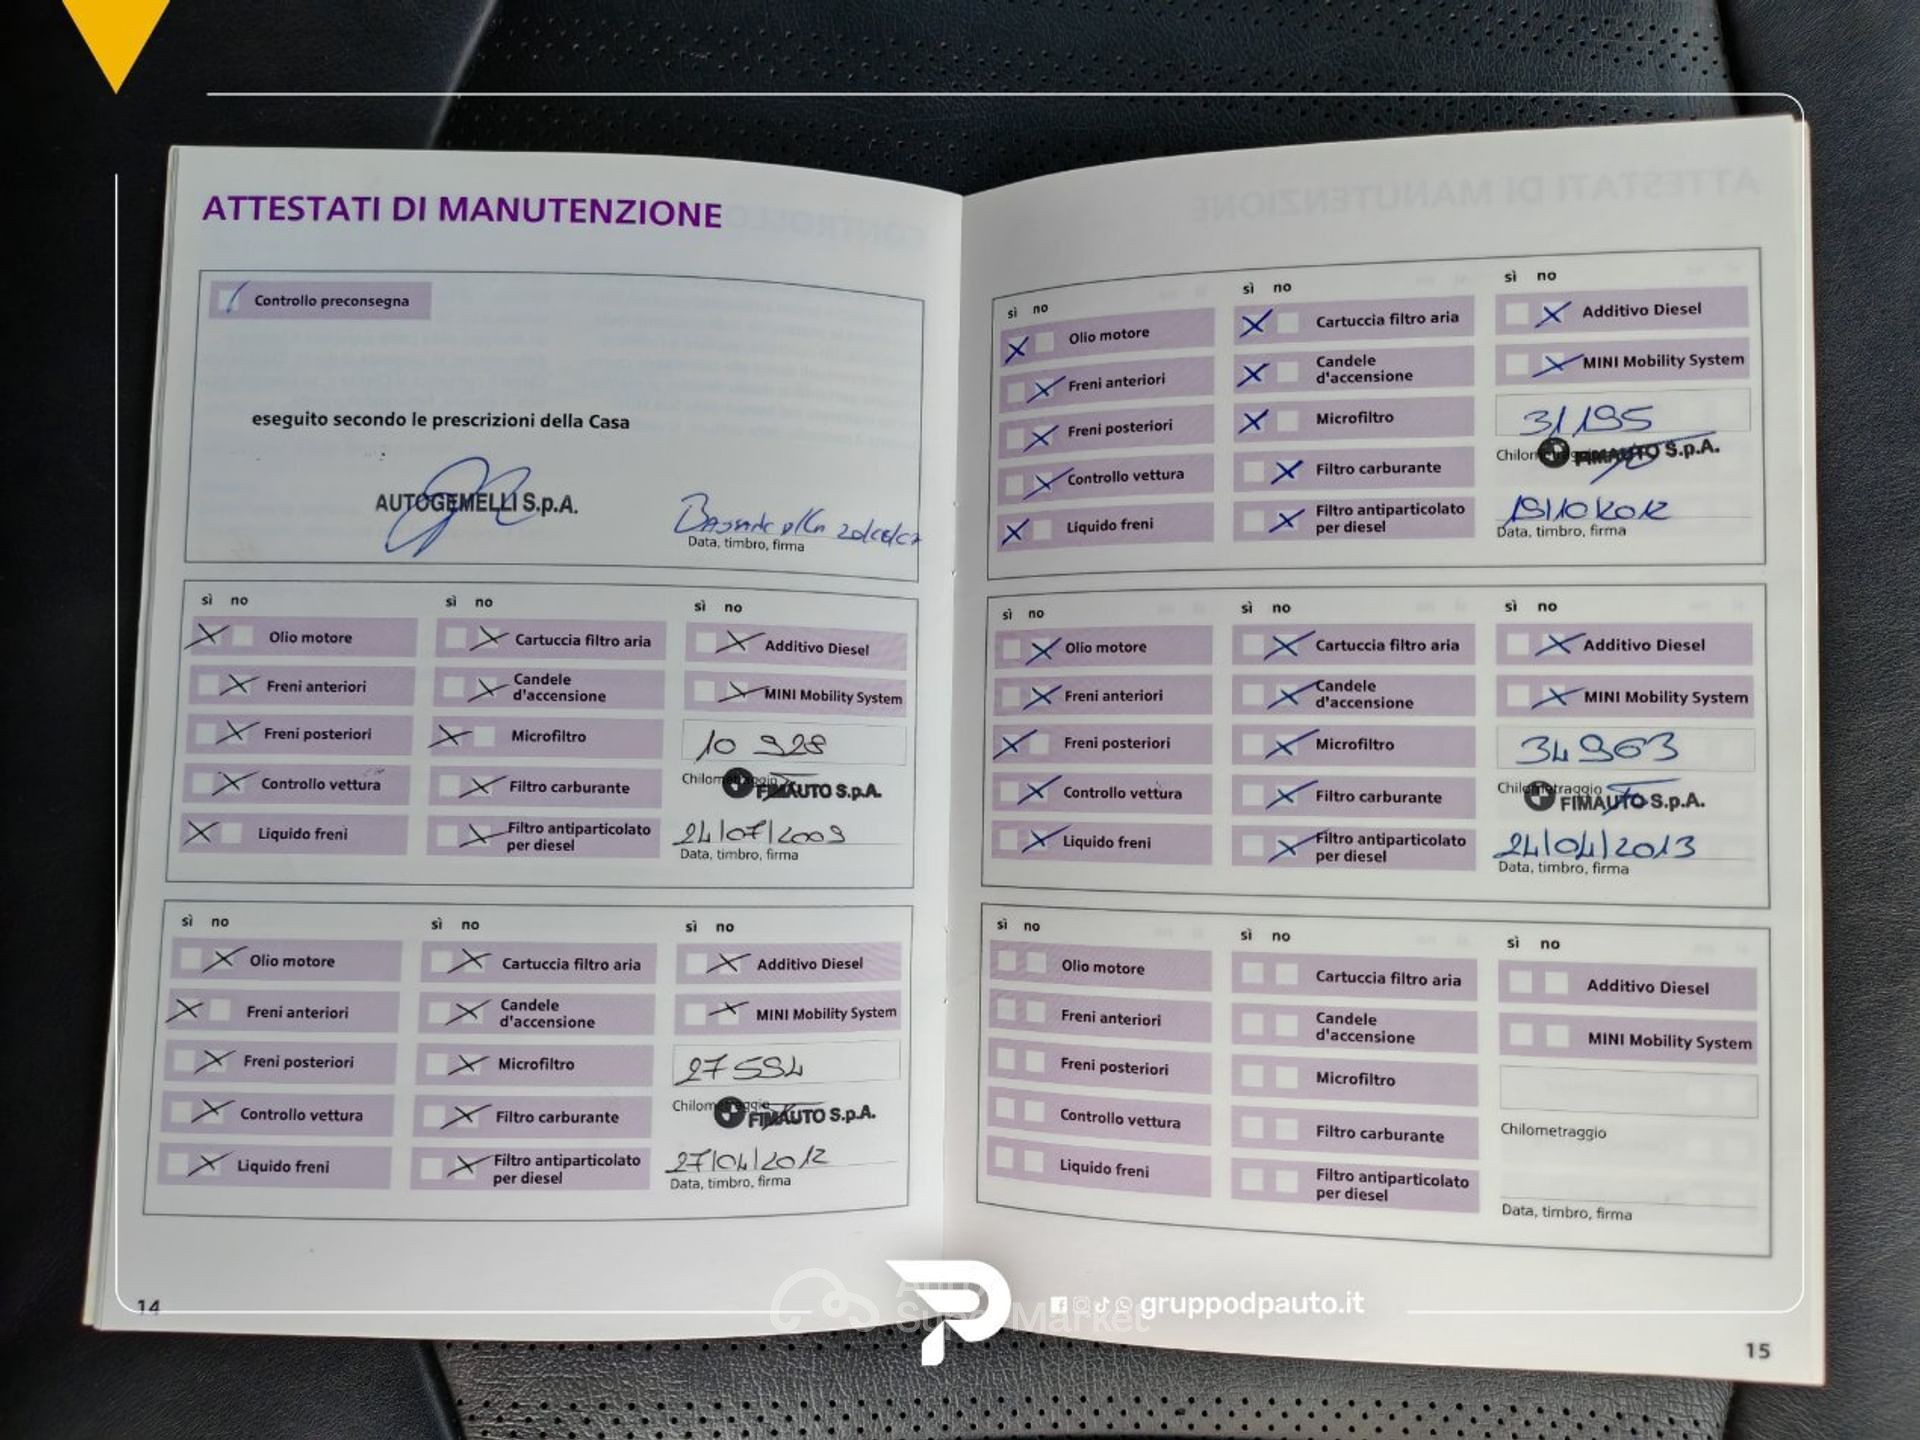 ATTESTATI DI MANUTENZIONE
Controllo preconsegna
eseguito secondo le prescrizioni della Casa
AUTOGEMELLI S.p.A.
Data, timbro, firma
sì no
sì no
sì no
Olio motore
Cartuccia filtro aria
Additivo Diesel
Freni anteriori
Candele
d'accensione
MINI Mobility System
Freni posteriori
Microfiltro
10 928
Controllo vettura
Filtro carburante
Chilometraggio
FIMAUTO S.p.A.
Liquido freni
Filtro antiparticolato
per diesel
24/07/2009
Data, timbro, firma
sì no
sì no
sì no
Olio motore
Cartuccia filtro aria
Additivo Diesel
Freni anteriori
Candele
d'accensione
MINI Mobility System
Freni posteriori
Microfiltro
27594
Controllo vettura
Filtro carburante
Chilometraggio
FIMAUTO S.p.A.
Liquido freni
Filtro antiparticolato
per diesel
27/04/2012
Data, timbro, firma
14
sì no
sì no
sì no
Olio motore
Cartuccia filtro aria
Additivo Diesel
Freni anteriori
Candele
d'accensione
MINI Mobility System
Freni posteriori
Microfiltro
31195
Controllo vettura
Filtro carburante
FIMAUTO S.p.A.
Liquido freni
Filtro antiparticolato
per diesel
19/10/2012
Data, timbro, firma
sì no
sì no
sì no
Olio motore
Cartuccia filtro aria
Additivo Diesel
Freni anteriori
Candele
d'accensione
MINI Mobility System
Freni posteriori
Microfiltro
34963
Controllo vettura
Filtro carburante
Chilometraggio
FIMAUTO S.p.A.
Liquido freni
Filtro antiparticolato
per diesel
24/04/2013
Data, timbro, firma
sì no
sì no
sì no
Olio motore
Cartuccia filtro aria
Additivo Diesel
Freni anteriori
Candele
d'accensione
MINI Mobility System
Freni posteriori
Microfiltro
Controllo vettura
Filtro carburante
Chilometraggio
Liquido freni
Filtro antiparticolato
per diesel
Data, timbro, firma
15
gruppodpauto.it